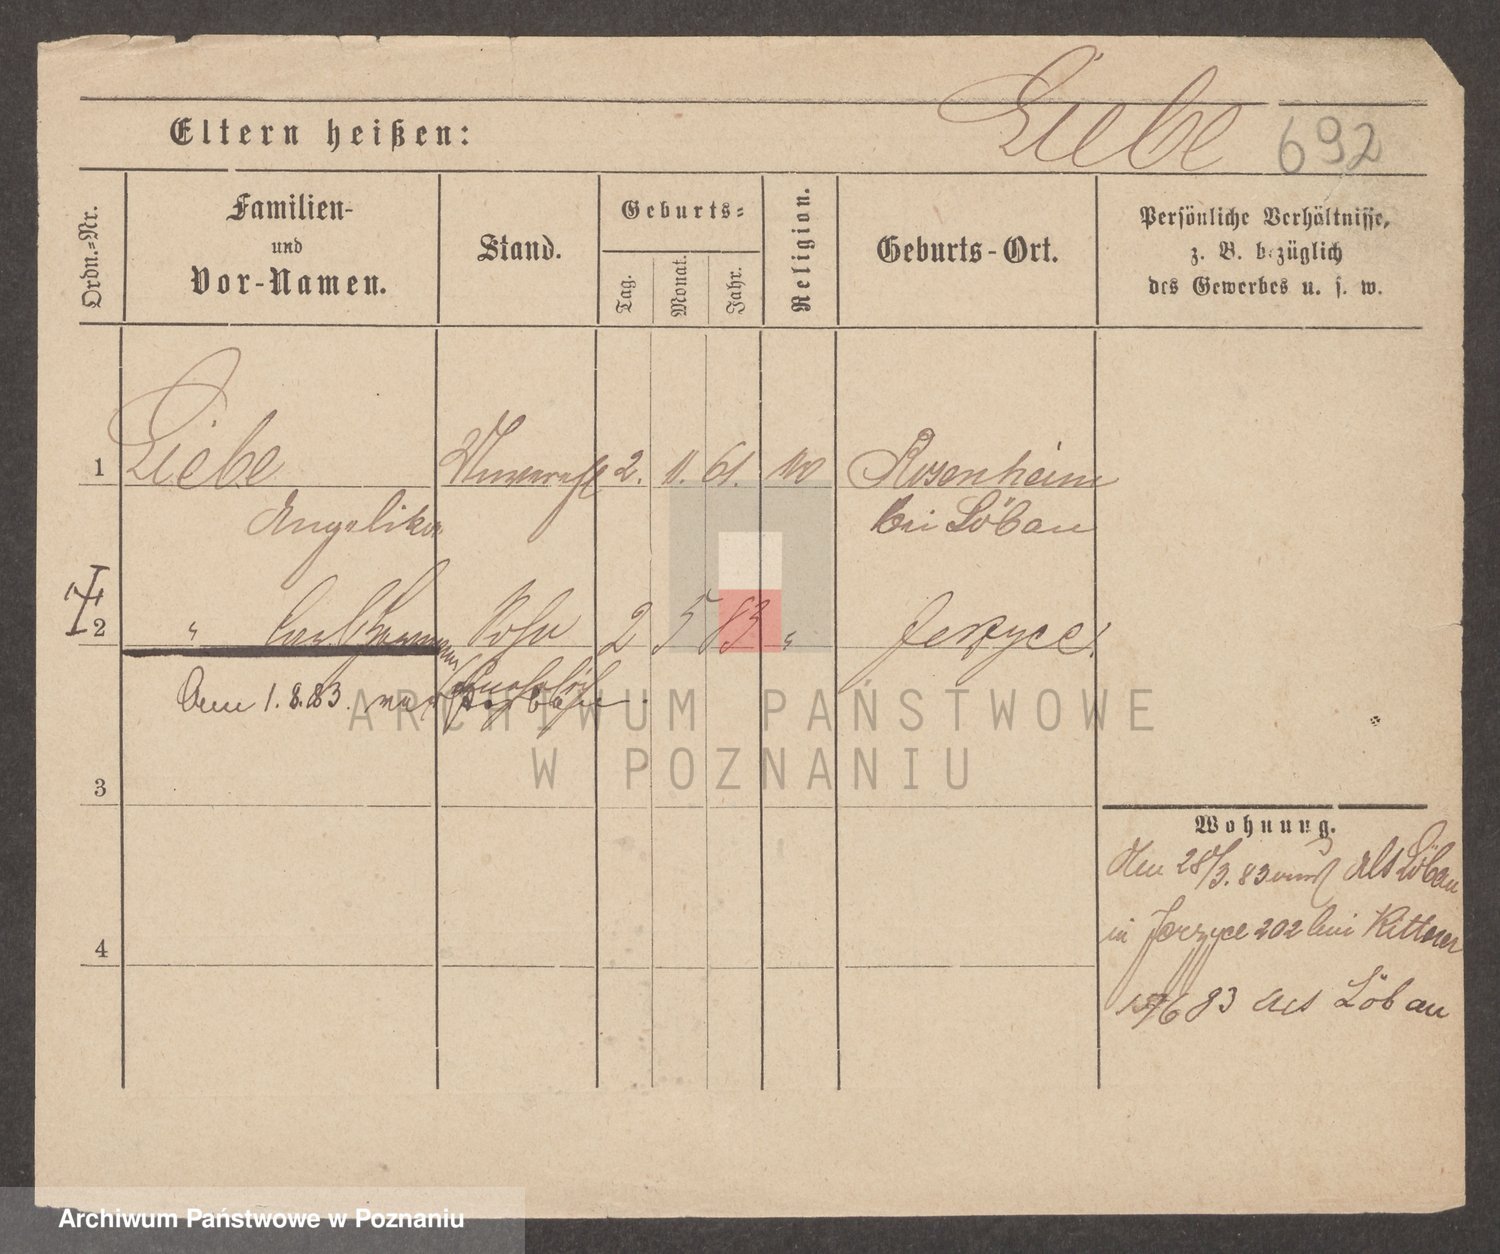 Liebe 692
Eltern heißen:
Ordn.=Nr.
Familien-
und
Vor-Namen.
Stand.
Geburts=
Tag.
Monat.
Jahr.
Religion.
Geburts-Ort.
Persönliche Verhältnisse,
z. B. bezüglich
des Gewerbes u. s. w.
1 Liebe 2. 11. 61. Rosenheim
Angelika bei Löbau
2 " Carl Hermann Sohn 2 5 83 " Jerzyce
Am 1.8.83. verstorben.
3
Wohnung.
Den 28/3. 83 aus Löbau
in Jerzyce 202 bei Kittner
4
6 83 Löbau
ARCHIWUM PAŃSTWOWE
W POZNANIU
Archiwum Państwowe w Poznaniu